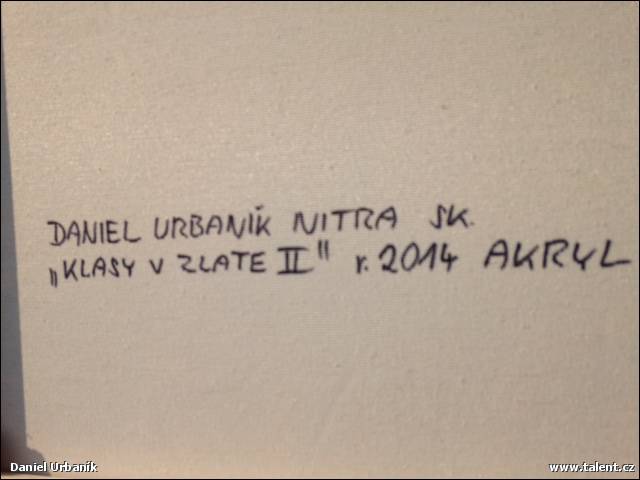 DANIEL URBANÍK NITRA SK.
„KLASY V ZLATE II" r. 2014 AKRYL
Daniel Urbaník www.talent.cz